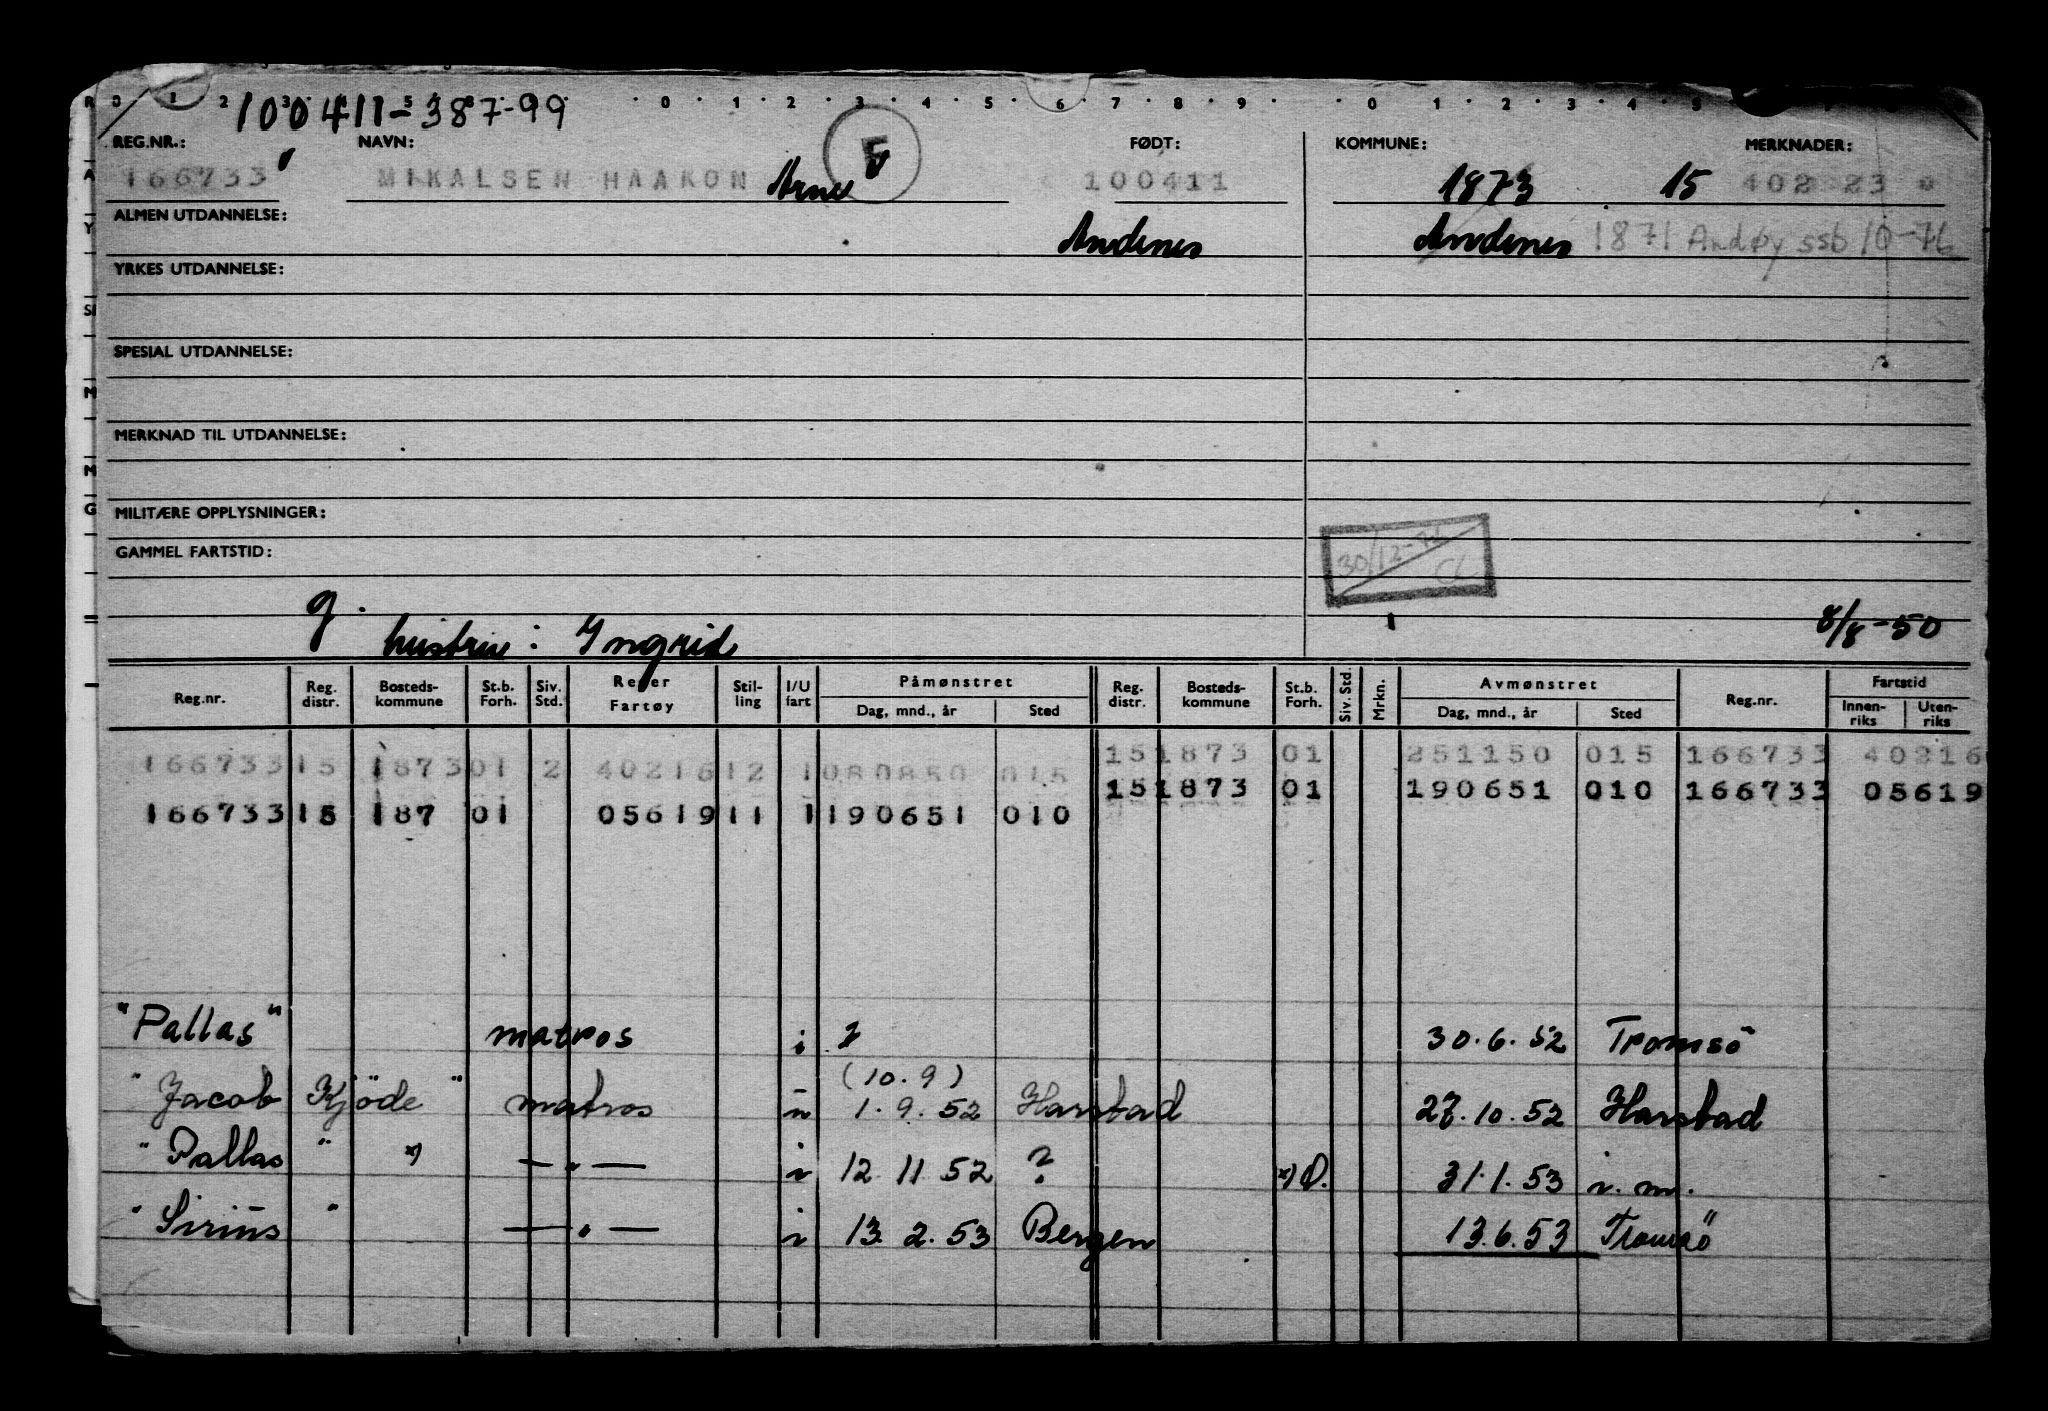 R 0 1 2 3 5 8 0 1 2 3 4 5 6 7 8 9 0 1 2 3 4 5
100411-387-99
REG.NR.: NAVN: F FØDT: KOMMUNE: MERKNADER:
166733 MIKALSEN HAAKON Arne 100411 1873 15 402 23
ALMEN UTDANNELSE: Andenes Andenes 1871 Andøy ssb 10-76
YRKES UTDANNELSE:
SPESIAL UTDANNELSE:
MERKNAD TIL UTDANNELSE:
MILITÆRE OPPLYSNINGER:
GAMMEL FARTSTID:
30/12-76 CL
g. 8/8-50
hustru: Yngrid
Reg.nr. Reg. distr. Bosteds-kommune St.b. Forh. Siv. Std. Reder Fartøy Stil-ling I/U fart Påmønstret Dag, mnd., år Sted Reg. distr. Bosteds-kommune St.b. Forh. Siv. Std. Mrkn. Avmønstret Dag, mnd., år Sted Reg.nr. Fartstid Innen-riks Uten-riks
166733 15 1873 01 2 40216 12 1 080850 015 15 1873 01 251150 015 166733 40216
15 1873 01 190651 010 166733 05619
166733 15 187 01 05619 11 1 190651 010
"Pallas" matros i ? 30.6.52 Tromsö
(10.9)
"Jacob Kjöde" matros u 1.9.52 Harstad 27.10.52 Harstad
"Pallas" x) —"— i 12.11.52 ? x) O. 31.1.53 i.m.
"Sirius" —"— i 13.2.53 Bergen 13.6.53 Tromsö